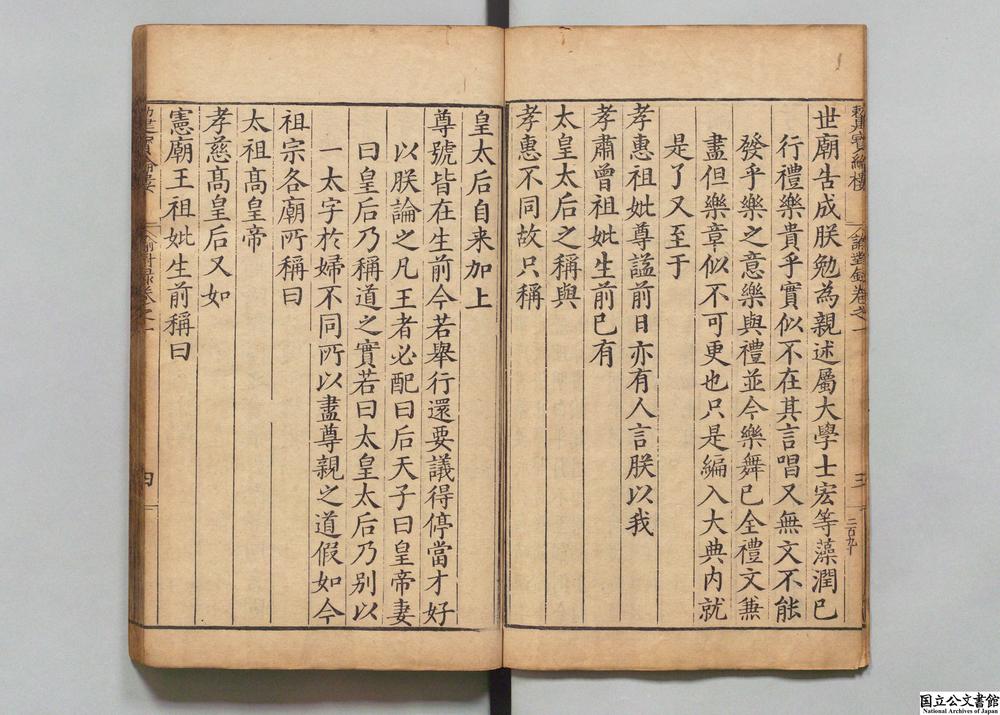 世廟告成朕勉為親述屬大學士宏等藻潤已
行禮樂貴乎實似不在其言唱又無文不能
發乎樂之意樂與禮並今樂舞已全禮文無
盡但樂章似不可更也只是編入大典内就
是了又至于
孝惠祖妣尊謚前日亦有人言朕以我
孝肅曾祖妣生前已有
太皇太后之稱與
孝惠不同故只稱
皇太后自来加上
尊號皆在生前今若舉行還要議得停當才好
以朕論之凡王者必配曰后天子曰皇帝妻
曰皇后乃稱道之實若曰太皇太后乃别以
一太字於婦不同所以盡尊親之道假如今
祖宗各廟所稱曰
太祖高皇帝
孝慈高皇后又如
憲廟王祖妣生前稱曰
諭對錄卷之一
三
四
国立公文書館
National Archives of Japan